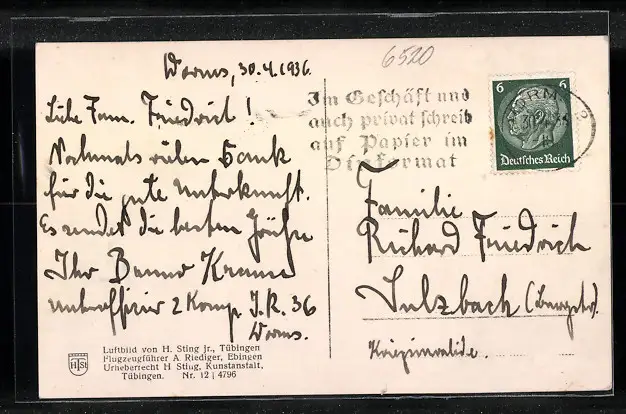 Worms, 30.4.1936.
Liebe Fam. Friedrich!
Nochmals vielen Dank
für die gute Unterkunft.
Es sendet die besten Grüße
Ihr Benno Krame
Unteroffizier 2 Komp. I.R. 36
Worms.
Luftbild von H. Sting jr., Tübingen
Flugzeugführer A Riediger, Ebingen
Urheberrecht H Sting, Kunstanstalt,
Tübingen. Nr. 12 | 4796
HSt
6520
Im Geschäft und
auch privat schreib
auf Papier im
Dinformat
6 6
WORMS
Deutsches Reich
Familie
Richard Friedrich
Sulzbach
Kriegsinvalide.